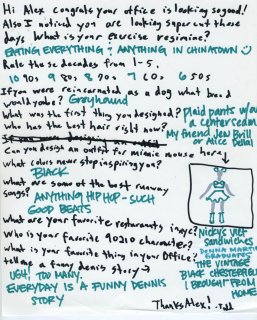 Hi Alex congrats your office is looking so good!
Also I noticed you are looking super cut these
days. What is your exercise regimine?
EATING EVERYTHING & ANYTHING IN CHINATOWN
Rate these decades from 1-5.
10 90s 9 80s 8 70s 7 60s 6 50s
If you were reincarnated as a dog what breed
would you be? Greyhound
What was the first thing you designed? Plaid pants w/ a center seam
Who has the best hair right now? My friend Jen Brill or Alice Dellal
Can you design an outfit for minnie mouse here
What colors never stop inspiring you?
BLACK
What are some of the best runway
songs? ANYTHING HIP HOP - SUCH
GOOD BEATS
What are your favorite restaurants in nyc? Nicky's Viet sandwiches
Who is your favorite 90210 character? DONNA MARTIN GRADUATES
What is your favorite thing in your office? THE VINTAGE BLACK CHESTERFIELD I BROUGHT FROM HOME
tell me a funny dennis story
UGH, TOO MANY.
EVERYDAY IS A FUNNY DENNIS
STORY
Thanks Alex!